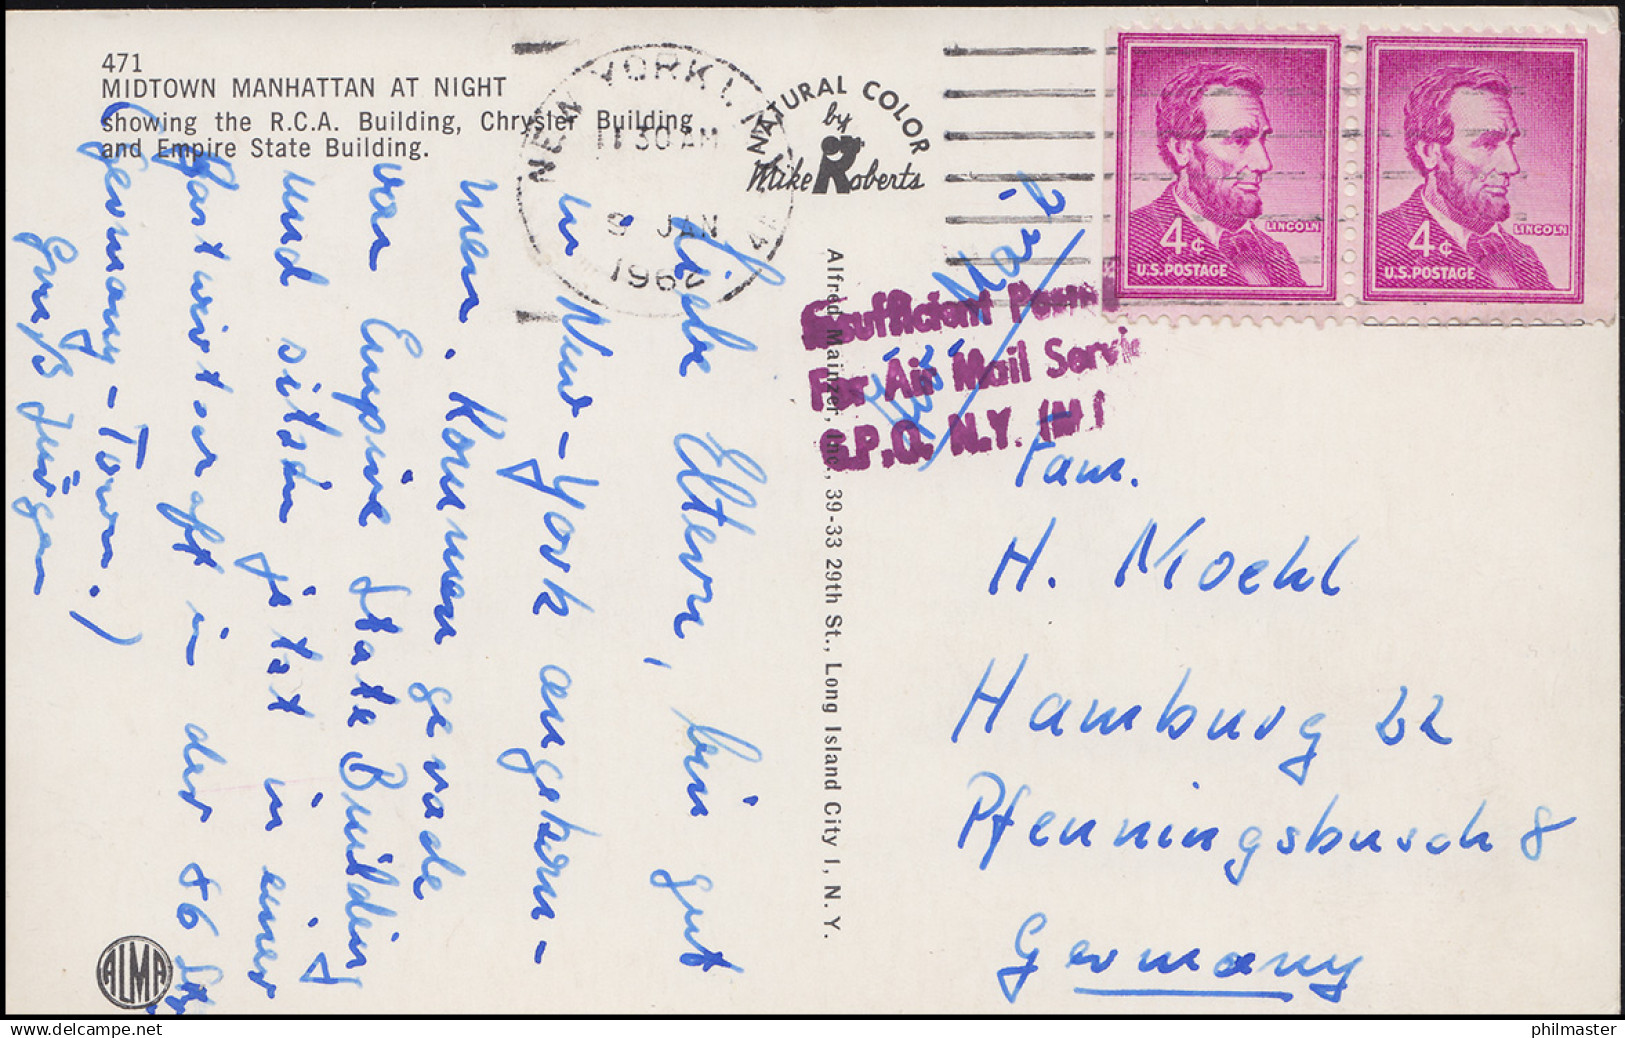 471
MIDTOWN MANHATTAN AT NIGHT
showing the R.C.A. Building, Chrysler Building
and Empire State Building.
NEW YORK 1, N.Y.
11 30 AM
9 JAN
1962
NATURAL COLOR
by
Mike Roberts
4¢
LINCOLN
U.S. POSTAGE
4¢
LINCOLN
U.S. POSTAGE
Insufficient Post
For Air Mail Servic
G.P.O. N.Y.
Liebe Eltern, bin gut
in New-York angekom-
men. Kommen gerade
von Empire State Building
und sitzen jetzt in einer
Gastwirtschaft in der 86
(Germany-Town.)
Gruß Jürgen
Alfred Mainzer, Inc., 39-33 29th St., Long Island City 1, N. Y.
Fam.
H. Moehl
Hamburg 22
Pfenningsbusch 8
Germany
ALMA
philmaster